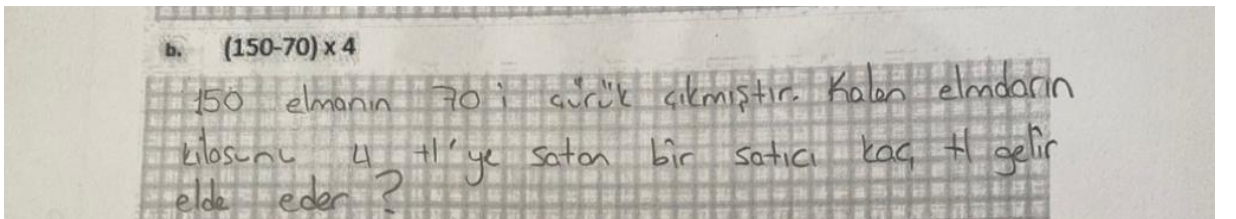 b. (150-70) x 4
150 elmanın 70 i çürük çıkmıştır. Kalan elmaların
kilosunu 4 tl'ye satan bir satıcı kaç tl gelir
elde eder ?